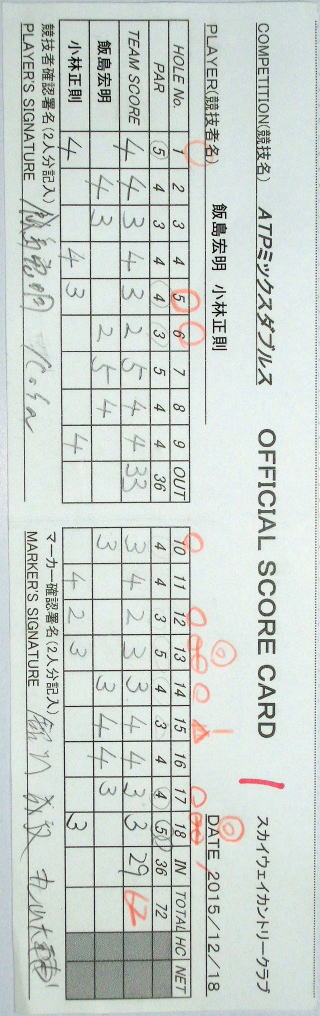 COMPETITION(競技名) ATPミックスダブルス OFFICIAL SCORE CARD スカイウェイカントリークラブ
PLAYER(競技者名) 飯島宏明 小林正則 DATE 2015/12/18
HOLE No. 1 2 3 4 5 6 7 8 9 OUT 10 11 12 13 14 15 16 17 18 IN TOTAL HC NET
PAR 5 4 3 4 4 3 5 4 4 36 4 4 3 5 4 3 4 4 5 36 72
TEAM SCORE 4 4 3 4 3 2 5 4 4 33 3 4 2 3 3 4 4 3 3 29 62
飯島宏明 4 3 2 5 4 3 3 4 4 3
小林正則 4 4 3 4 4 2 3 3
競技者確認署名(2人分記入)
PLAYER'S SIGNATURE 飯島宏明
マーカー確認署名(2人分記入)
MARKER'S SIGNATURE